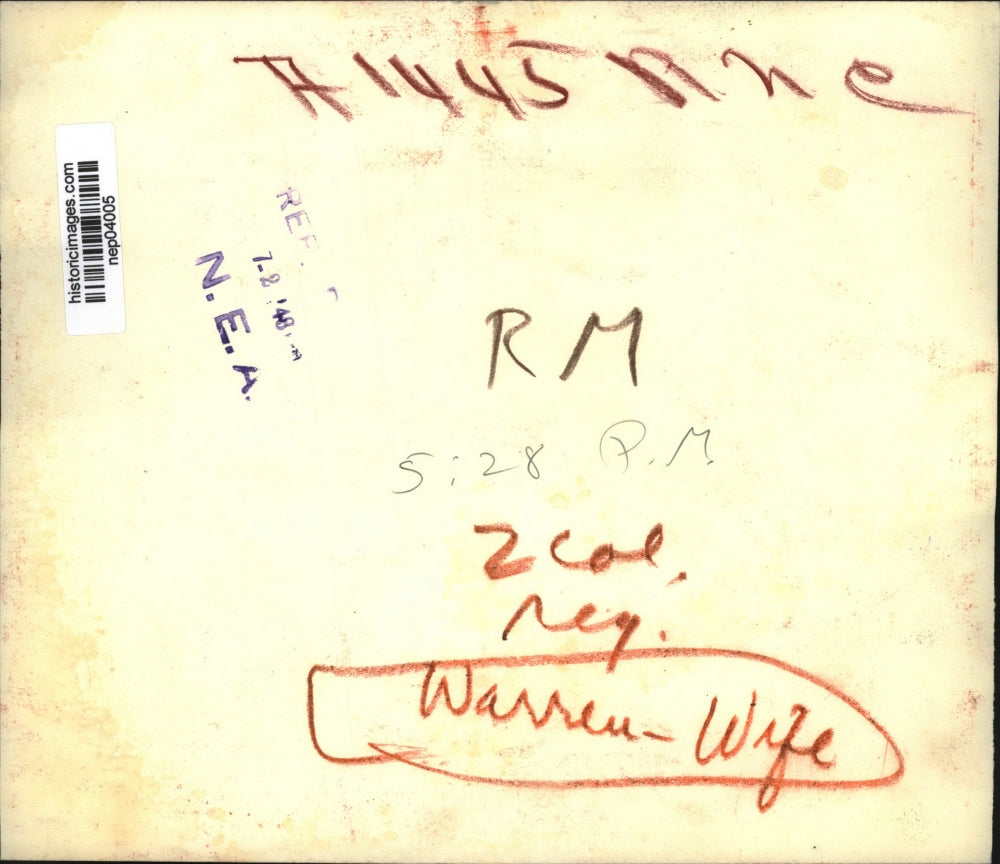 A1445 RNC
historicimages.com
nep04005
REF
7-2 '48
N.E.A.
RM
5:28 P.M.
2 col.
reg.
Warren-Wife